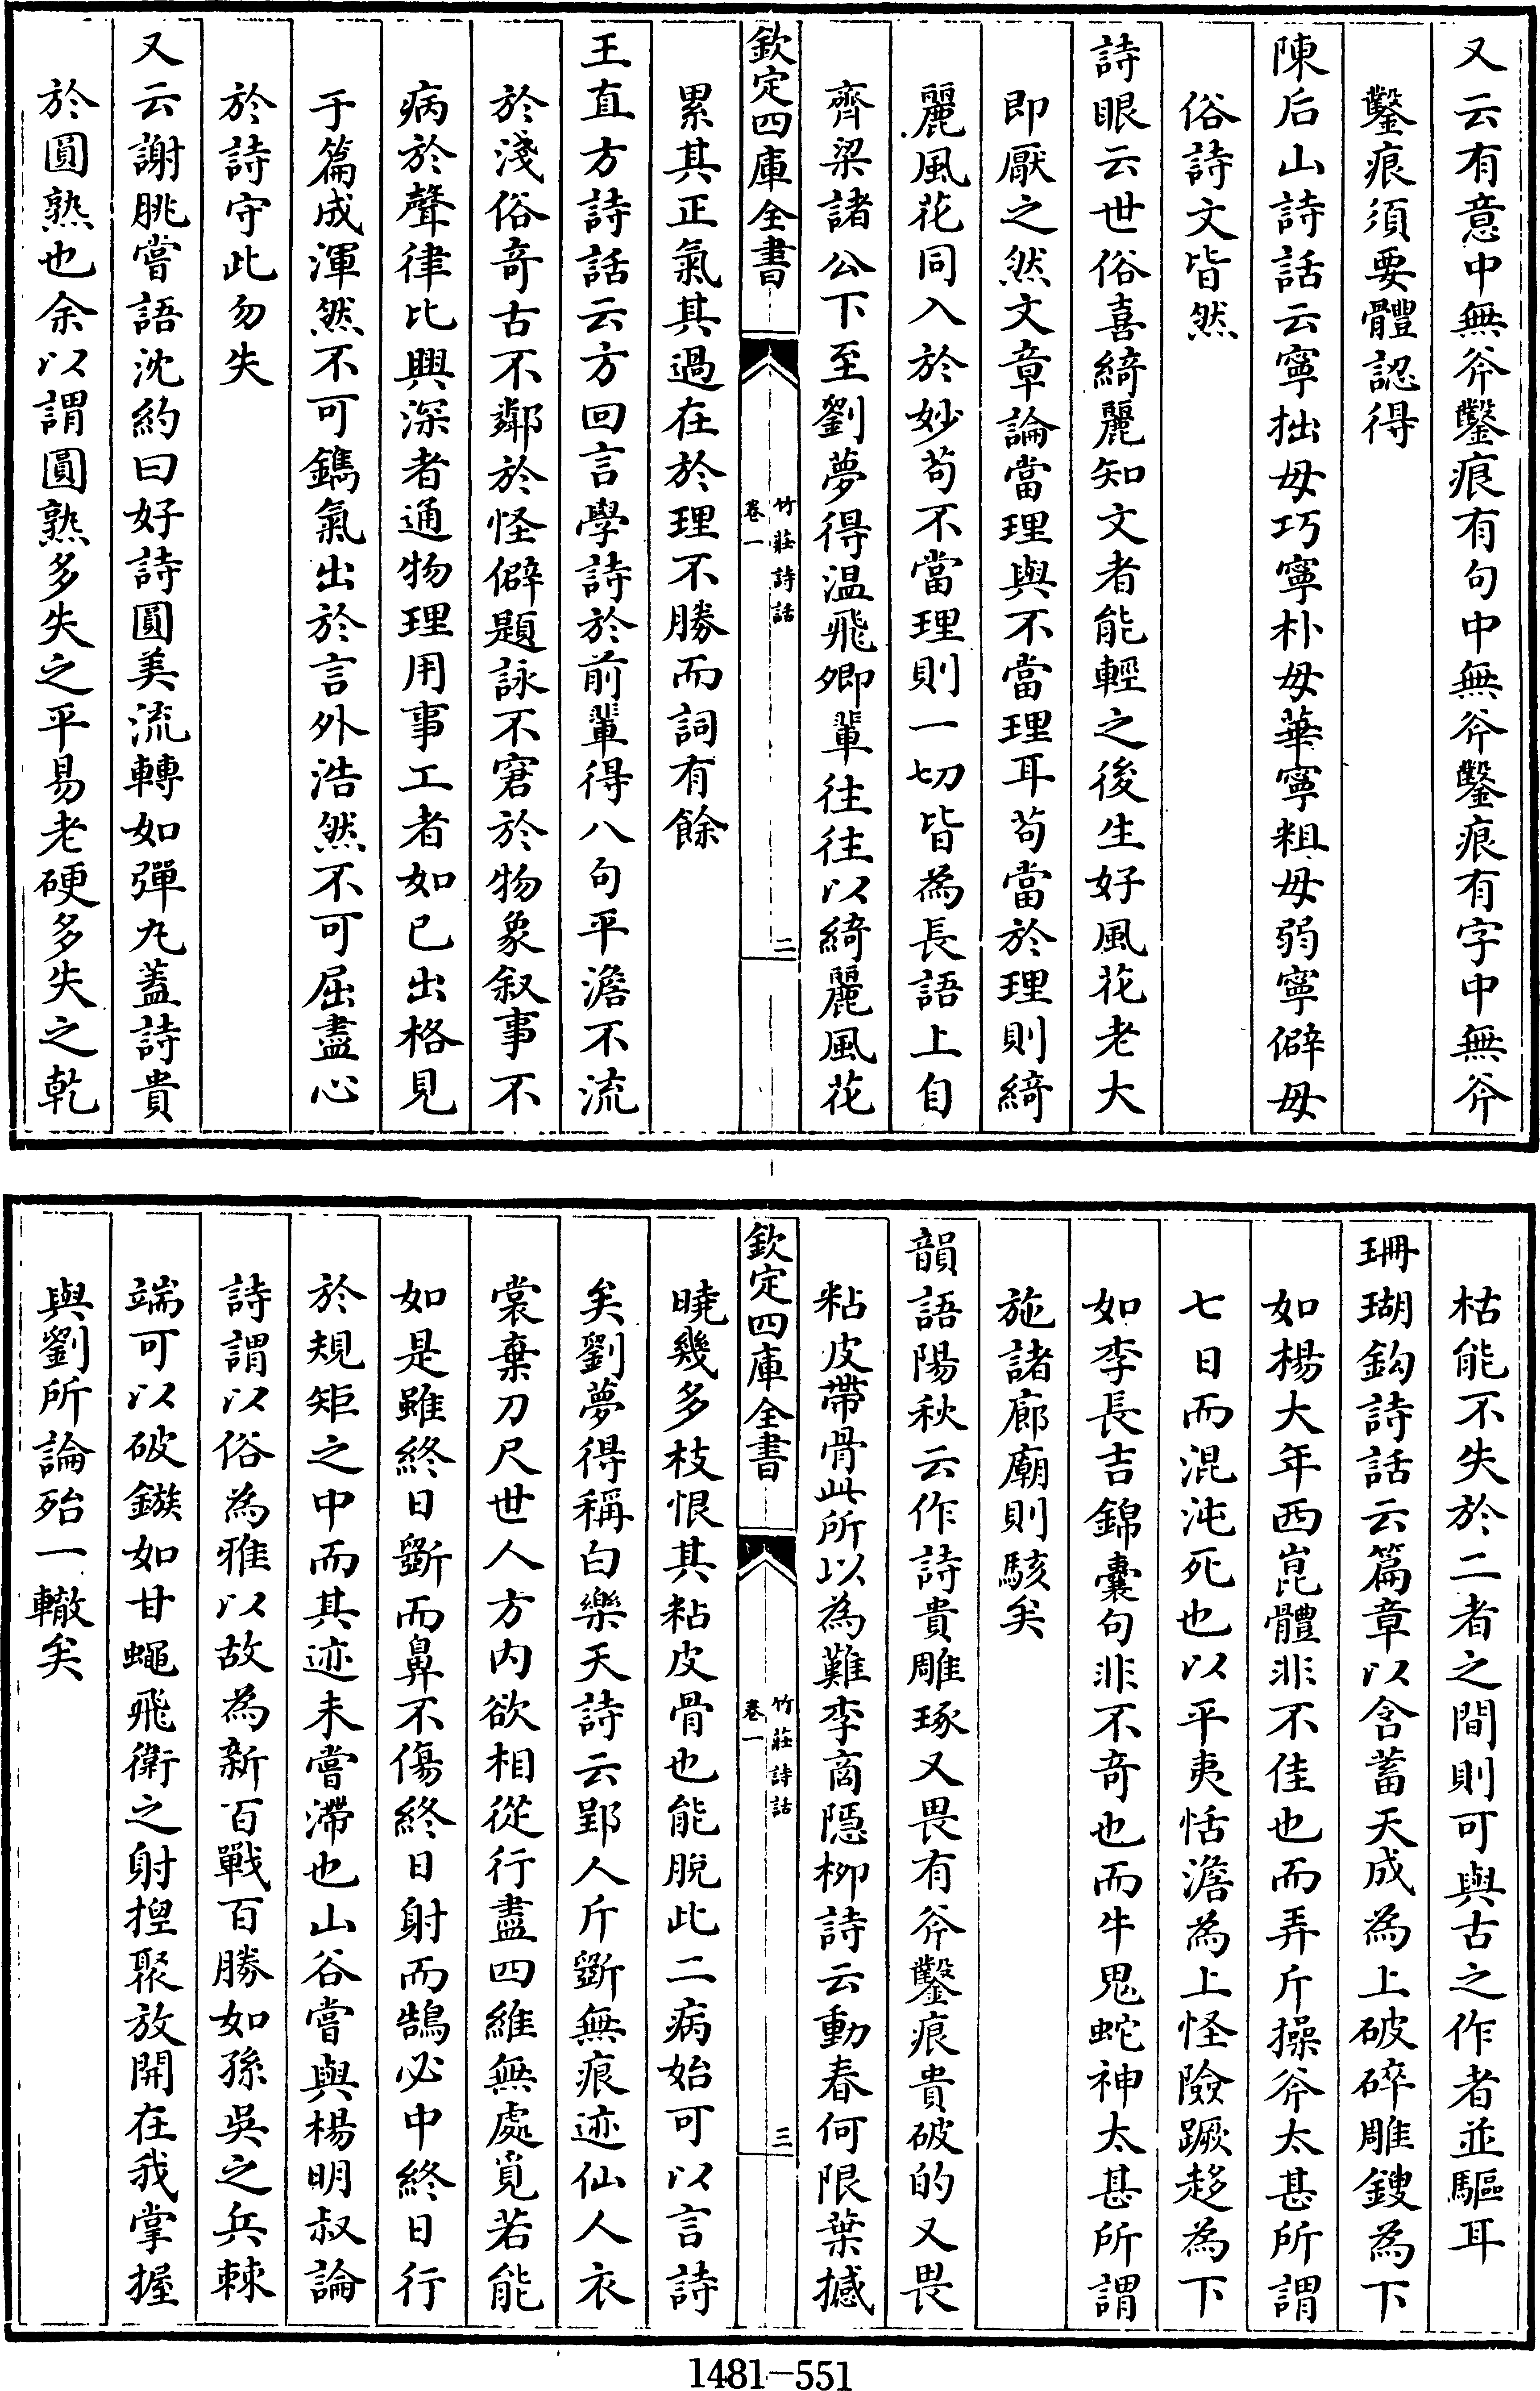 又云有意中無斧鑿痕有句中無斧鑿痕有字中無斧
鑿痕須要體認得
陳后山詩話云寧拙毋巧寧朴毋華寧粗毋弱寧僻毋
俗詩文皆然
詩眼云世俗喜綺麗知文者能輕之後生好風花老大
即厭之然文章論當理與不當理耳苟當於理則綺
麗風花同入於妙苟不當理則一切皆為長語上自
齊梁諸公下至劉夢得温飛卿輩往往以綺麗風花
欽定四庫全書
竹莊詩話
卷一
二
累其正氣其過在於理不勝而詞有餘
王直方詩話云方回言學詩於前輩得八句平澹不流
於淺俗奇古不鄰於怪僻題詠不窘於物象叙事不
病於聲律比興深者通物理用事工者如已出格見
于篇成渾然不可鐫氣出於言外浩然不可屈盡心
於詩守此勿失
又云謝朓嘗語沈約曰好詩圓美流轉如彈丸蓋詩貴
於圓熟也余以謂圓熟多失之平易老硬多失之乾
枯能不失於二者之間則可與古之作者並驅耳
珊瑚鈎詩話云篇章以含蓄天成為上破碎雕鎪為下
如楊大年西崑體非不佳也而弄斤操斧太甚所謂
七日而混沌死也以平夷恬澹為上怪險蹶趍為下
如李長吉錦囊句非不奇也而牛鬼蛇神太甚所謂
施諸廊廟則駭矣
韻語陽秋云作詩貴雕琢又畏有斧鑿痕貴破的又畏
粘皮帶骨此所以為難李商隱柳詩云動春何限葉撼
欽定四庫全書
竹莊詩話
卷一
三
曉幾多枝恨其粘皮骨也能脫此二病始可以言詩
矣劉夢得稱白樂天詩云郢人斤斲無痕迹仙人衣
裳棄刀尺世人方内欲相從行盡四維無處覓若能
如是雖終日斲而鼻不傷終日射而鵠必中終日行
於規矩之中而其迹未嘗滯也山谷嘗與楊明叔論
詩謂以俗為雅以故為新百戰百勝如孫吳之兵棘
端可以破鏃如甘蠅飛衛之射揑聚放開在我掌握
與劉所論殆一轍矣
1481-551